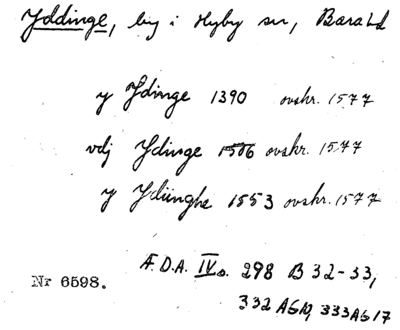 Yddinge, by i Hyby sn, Bara hd
y Ydinge 1390 avskr. 1577
vdj Ydinge 1506 avskr. 1577
y Ydiinghe 1553 avskr. 1577
Æ.D.A. IV s. 298 B 32-33,
Nr 6598.
332 A6 17, 333 A6 17